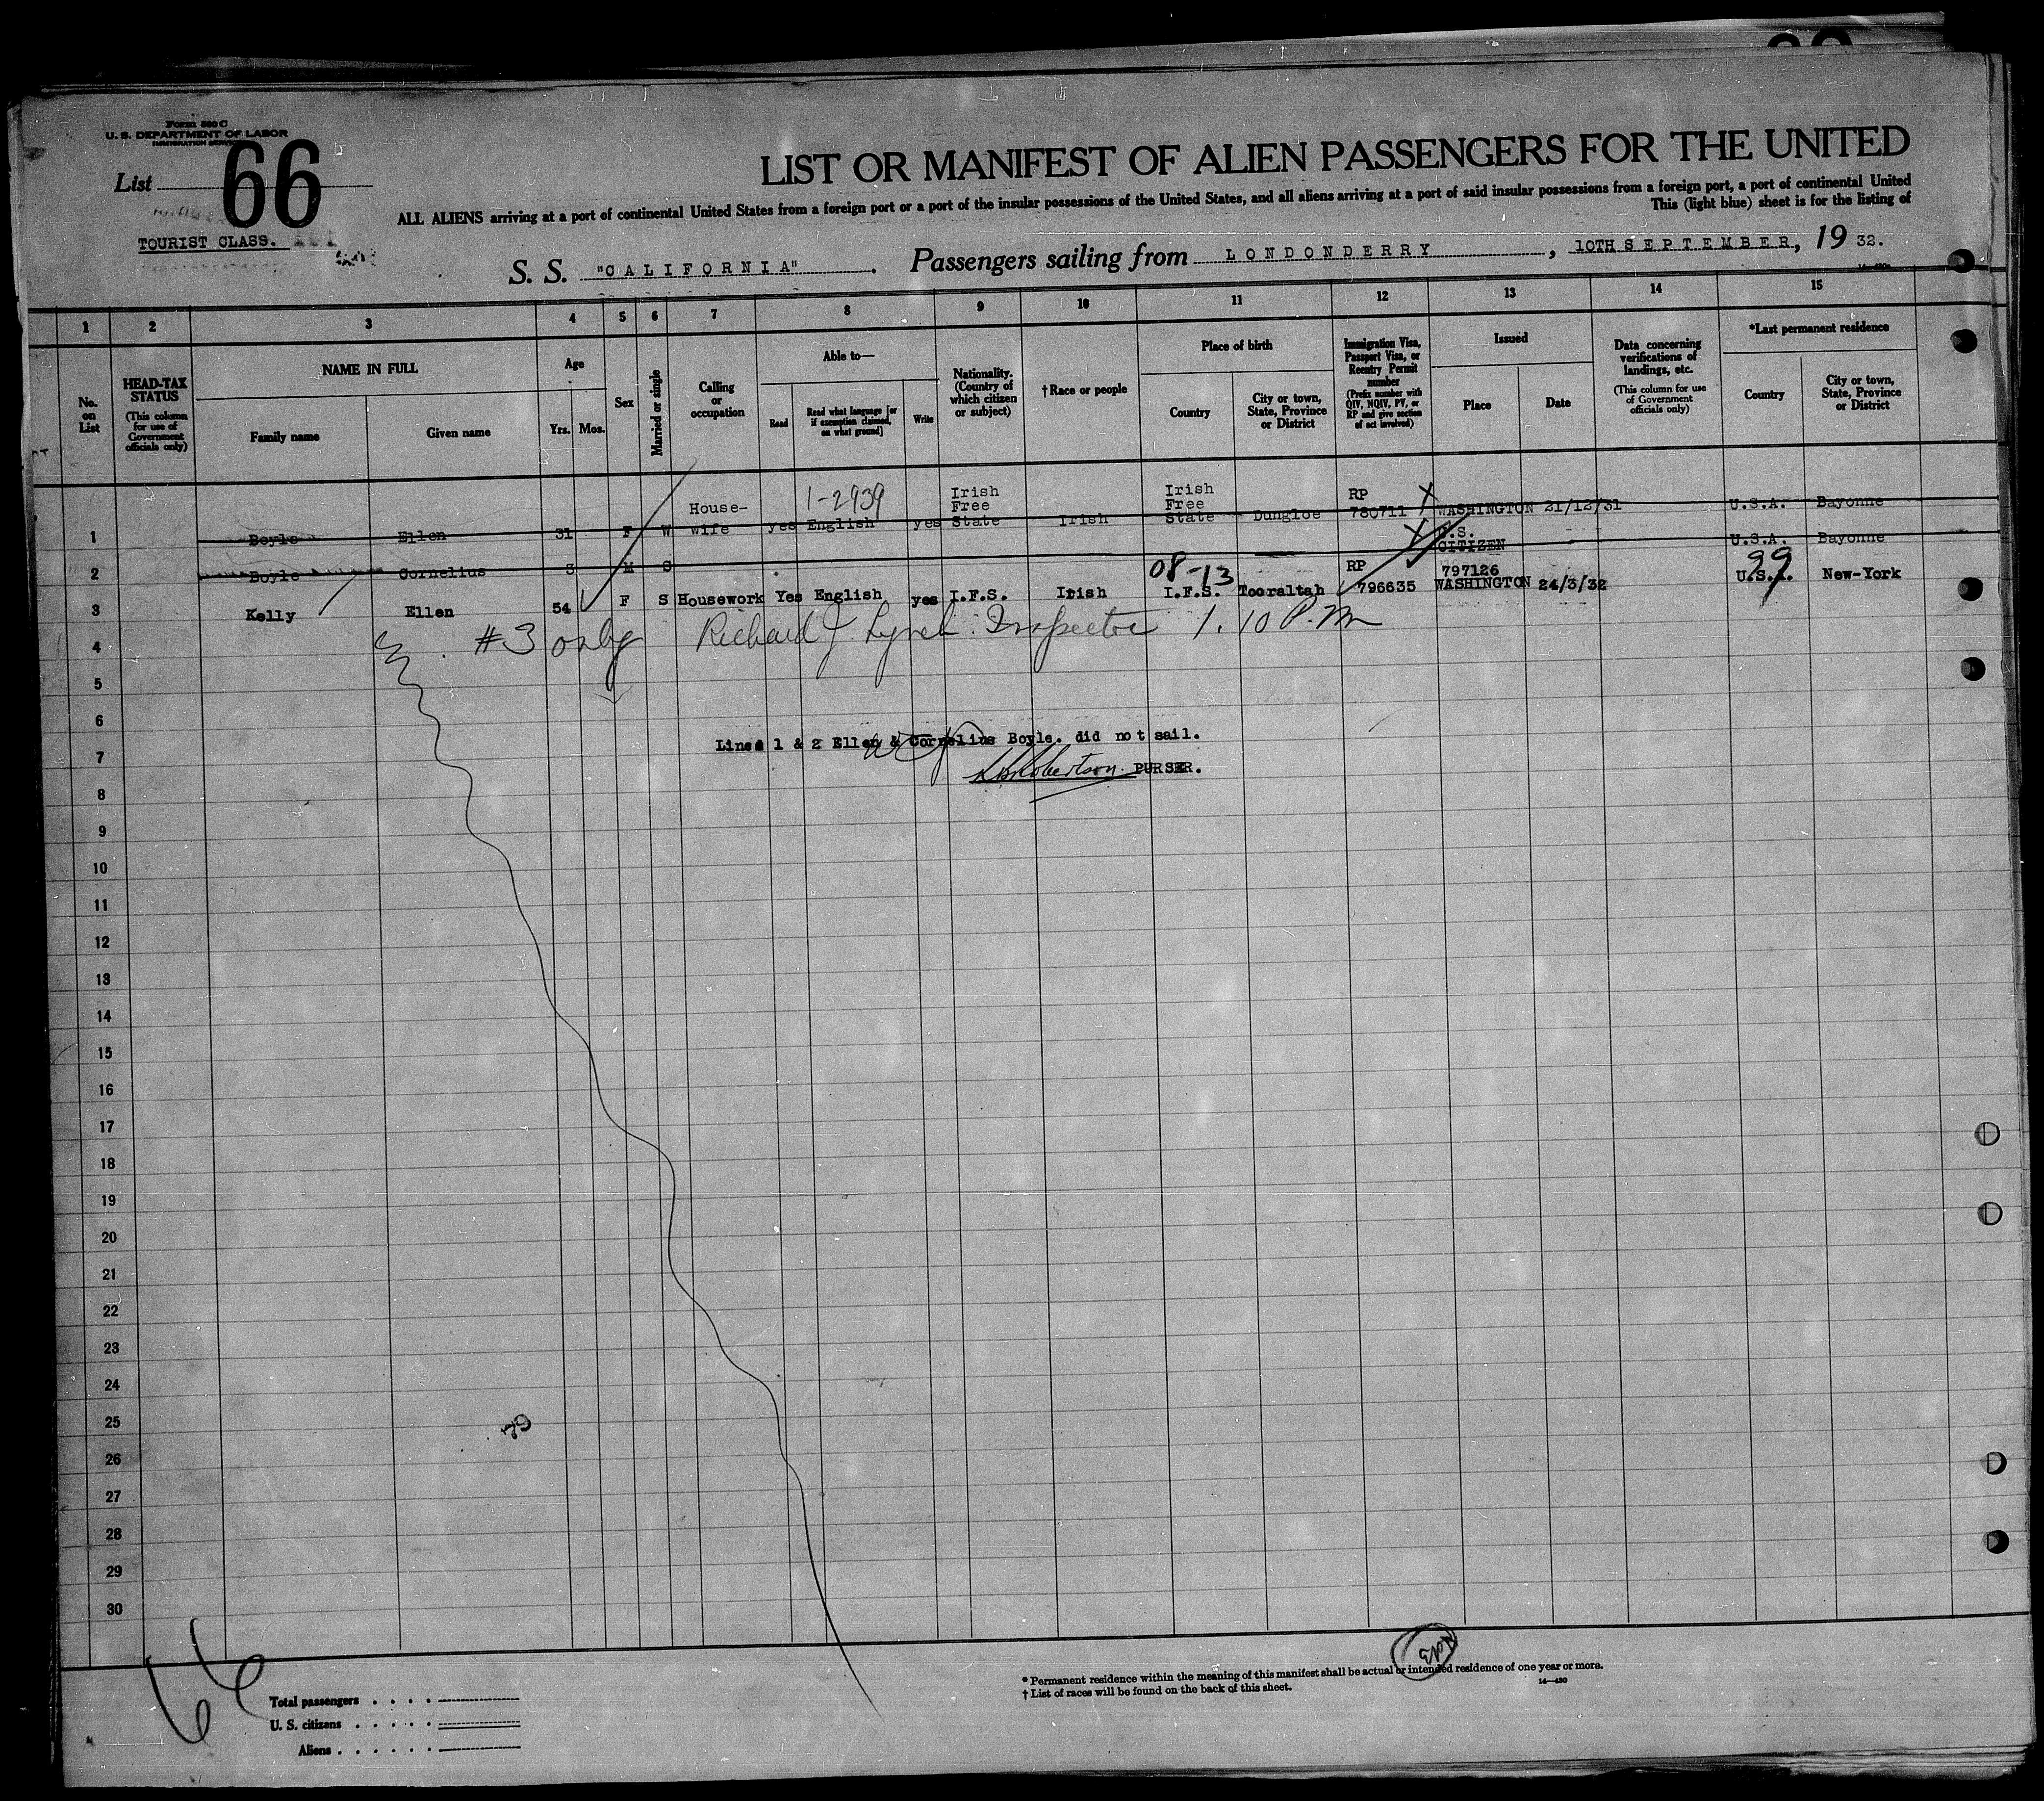 Form 500 C
U. S. DEPARTMENT OF LABOR
IMMIGRATION SERVICE
List 66
TOURIST CLASS.
LIST OR MANIFEST OF ALIEN PASSENGERS FOR THE UNITED
ALL ALIENS arriving at a port of continental United States from a foreign port or a port of the insular possessions of the United States, and all aliens arriving at a port of said insular possessions from a foreign port, a port of continental United
This (light blue) sheet is for the listing of
S. S. "CALIFORNIA" . Passengers sailing from LONDONDERRY , 10TH SEPTEMBER, 19 32.
1 2 3 4 5 6 7 8 9 10 11 12 13 14 15
No. on List
HEAD-TAX STATUS
(This column for use of Government officials only)
NAME IN FULL
Family name
Given name
Age
Yrs. Mos.
Sex
Married or single
Calling or occupation
Able to—
Read
Read what language [or if exemption claimed, on what ground]
Write
Nationality. (Country of which citizen or subject)
†Race or people
Place of birth
Country
City or town, State, Province or District
Immigration Visa, Passport Visa, or Reentry Permit number
(Prefix number with QIV, NQIV, PV, or RP and give section of act involved)
Issued
Place
Date
Data concerning verifications of landings, etc.
(This column for use of Government officials only)
*Last permanent residence
Country
City or town, State, Province or District
1-2939
1 Boyle Ellen 31 F W House-wife yes English yes Irish Free State Irish Irish Free State Dungloe RP 780711 WASHINGTON 21/12/31 U.S.A. Bayonne
2 Boyle Cornelius 3 M S U.S. CITIZEN U.S.A. Bayonne
08-13
99
3 Kelly Ellen 54 F S Housework Yes English yes I.F.S. Irish I.F.S. Tooraltah RP 796635 797126 WASHINGTON 24/3/32 U.S.A. New-York
4 #3 only Richard J Lynch Inspector 1.10 P.M
5
6
Lines 1 & 2 Ellen & Cornelius Boyle. did not sail.
7
Robertson PURSER.
8
9
10
11
12
13
14
15
16
17
18
19
20
21
22
23
24
25
26
27
28
29
30
66
Total passengers . . . .
U. S. citizens . . . . .
Aliens . . . . . .
* Permanent residence within the meaning of this manifest shall be actual or intended residence of one year or more.
† List of races will be found on the back of this sheet.
14—430